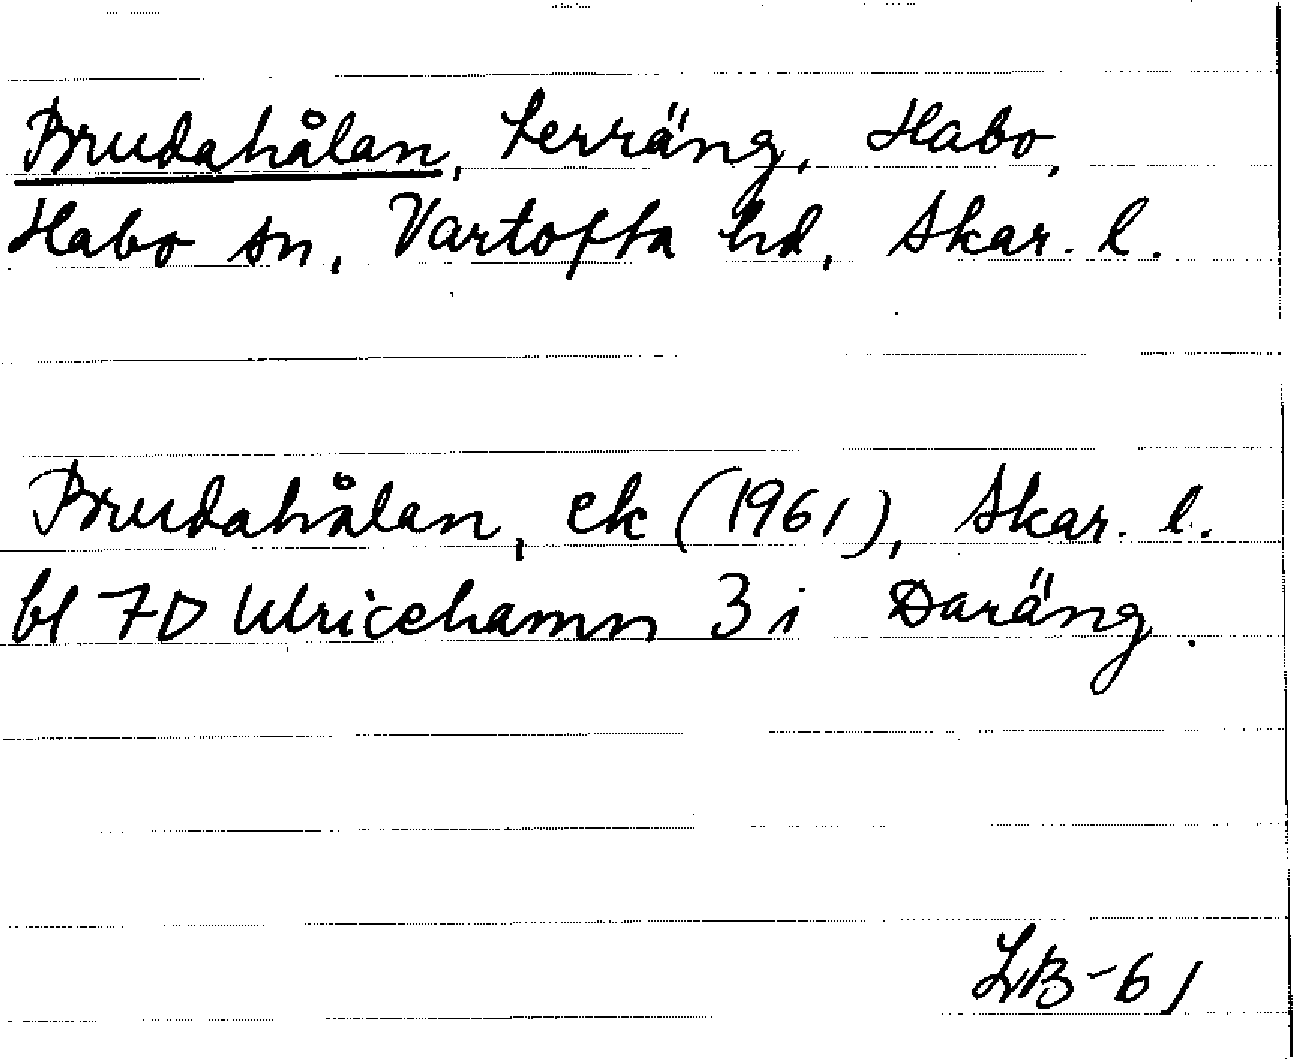 Brudahålan, terräng, Habo,
Habo sn, Vartofta hd, Skar. l.
Brudahålan, ek (1961), Skar. l.
bl 7D Ulricehamn 3 i Daräng.
LB-61